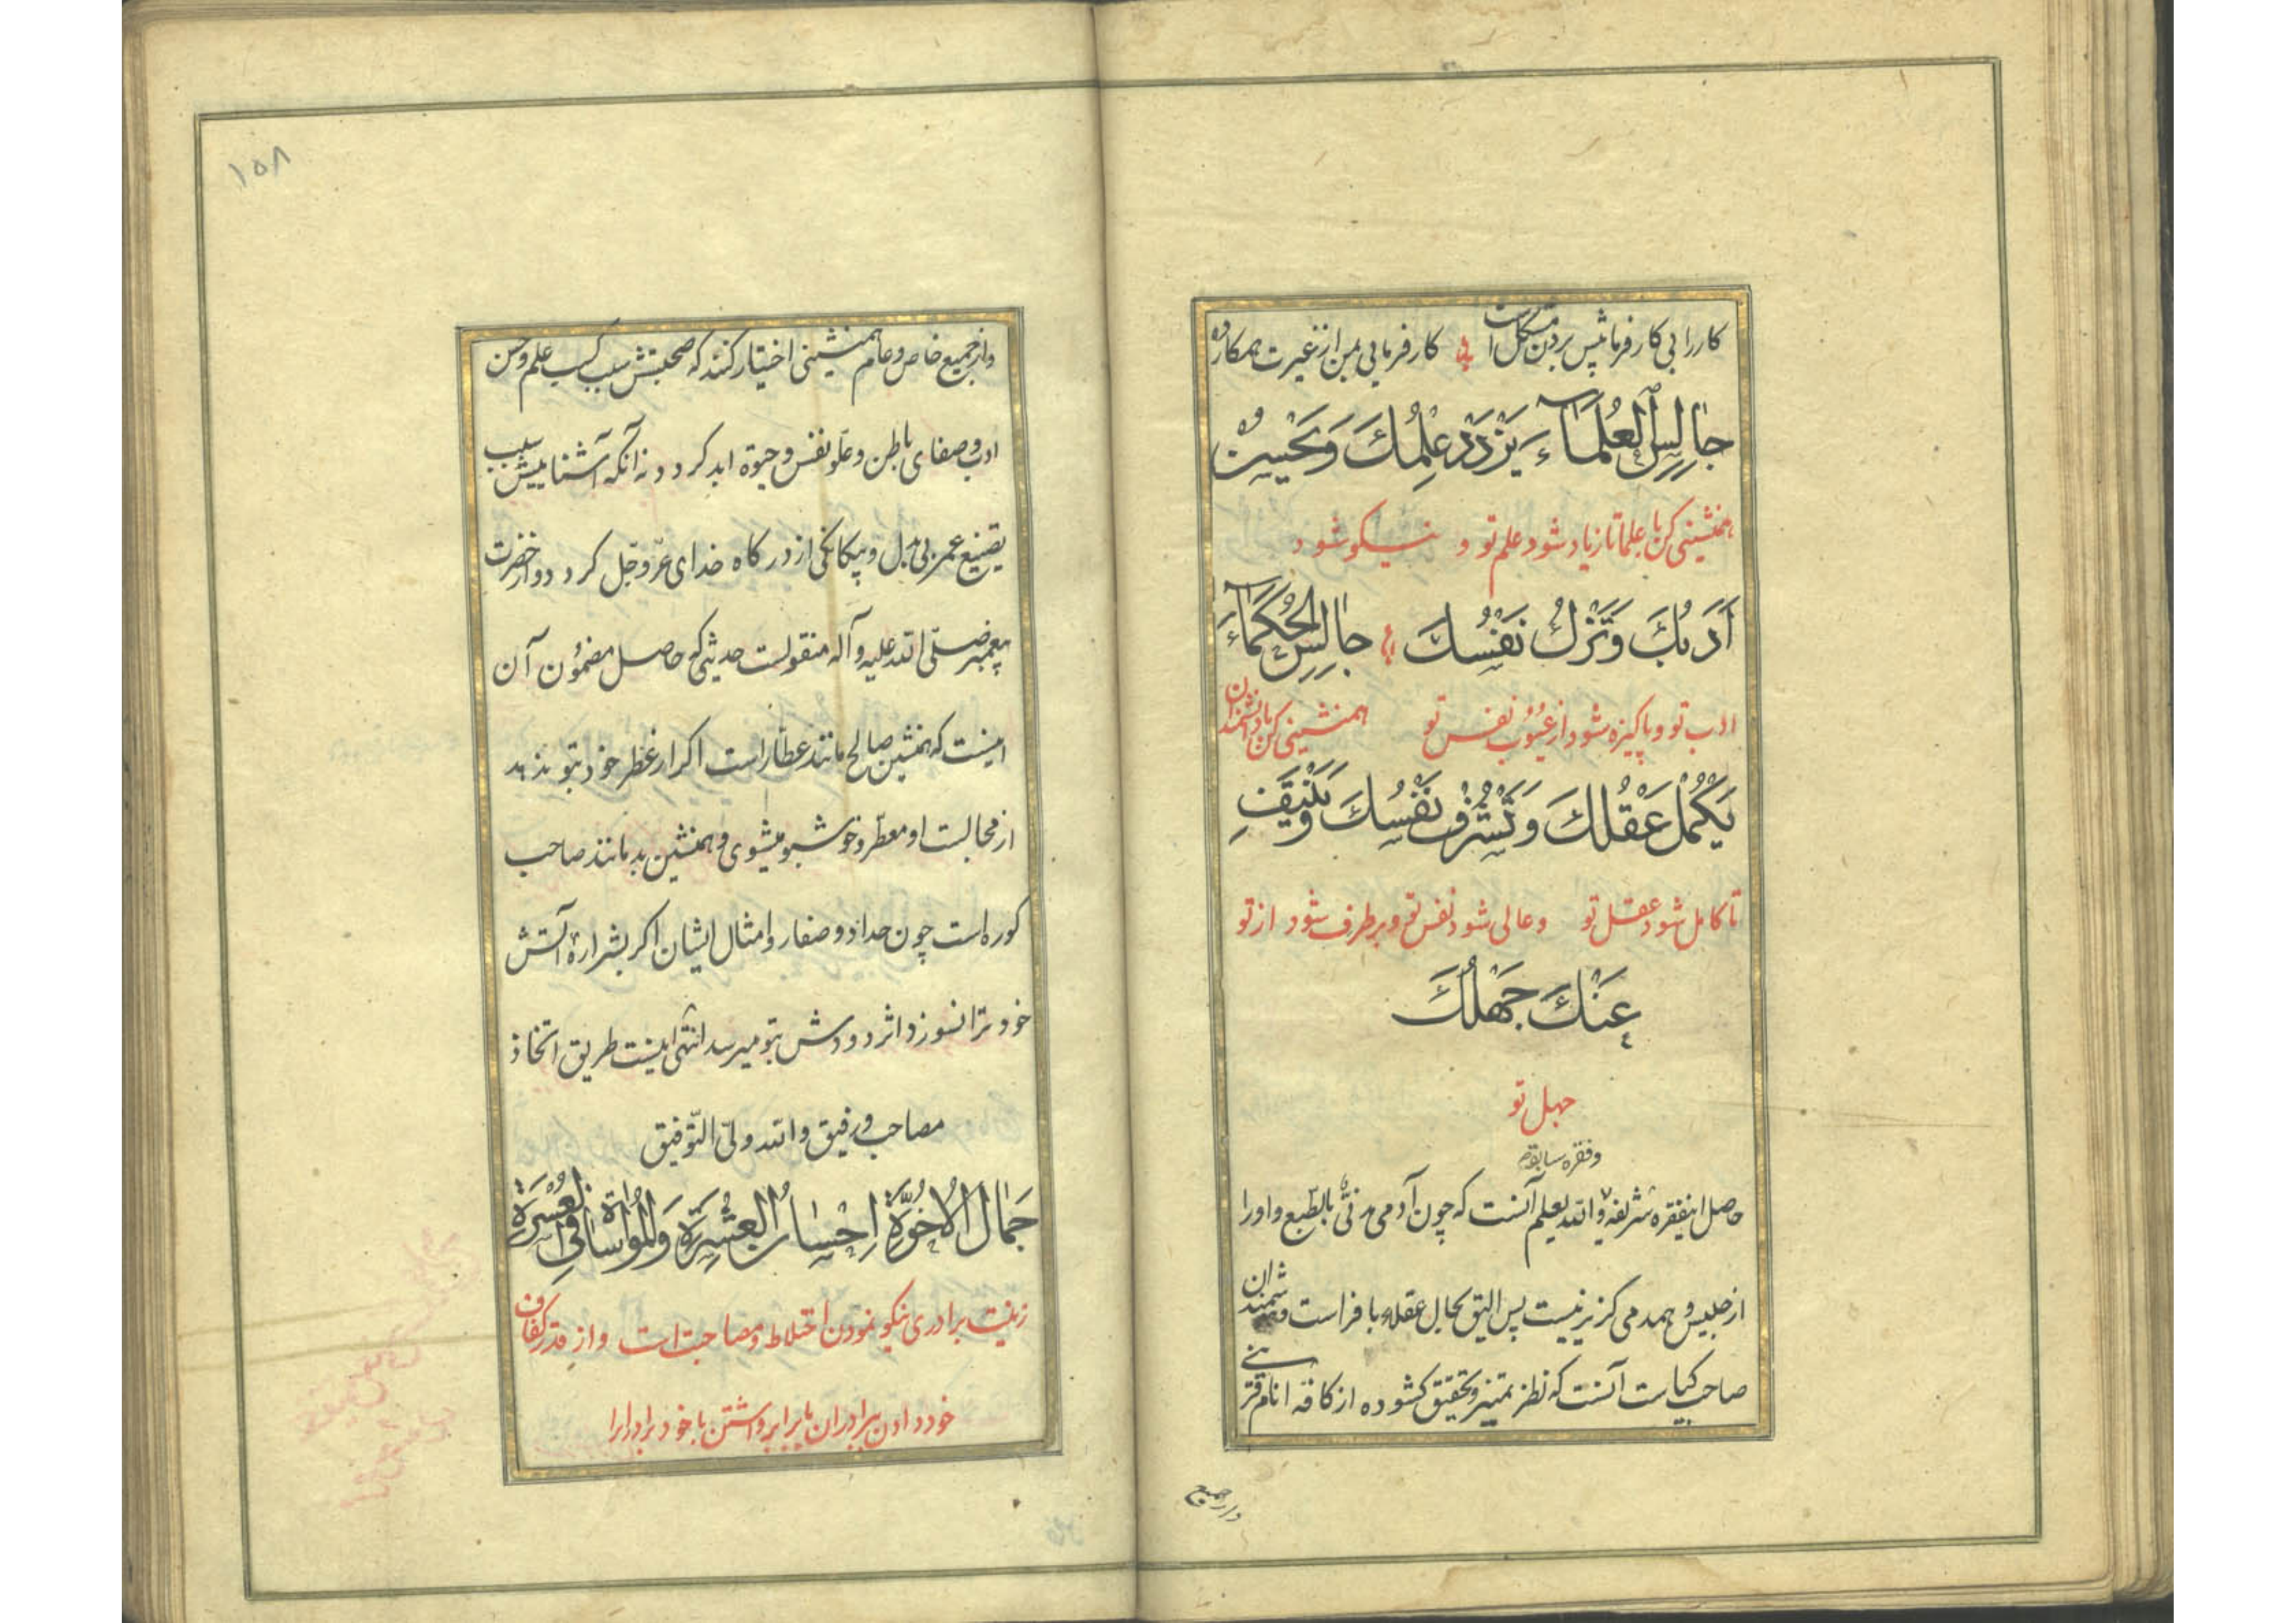 کار را بی کارفرما پیش بردن مشکل است کارفرمایی بمن از غیرت همکار ده
جالِسِ العُلَمآءَ یَزْدَدْ عِلمُكَ وَیَحْسُنْ
همنشینی کن با علما تا زیاد شود علم تو و نیکو شود
اَدَبُكَ وَتَزْكُ نَفْسُكَ جالِسِ الحُکَمآءَ
ادب تو و پاکیزه شود از عیوب نفس تو همنشینی کن با دانشمندان
یَکْمُلْ عَقْلُكَ وَتَشْرُفْ نَفْسُكَ وَیَنْتَفِ
تا کامل شود عقل تو و عالی شود نفس تو و برطرف شود از تو
عَنْكَ جَهْلُكَ
جهل تو
و فقره سابقه
حاصل اینفقره شریفه والله یعلم آنست که چون آدمی مدنی بالطبع و او را
از جلیس و همدمی گزیر نیست پس الیق بحال عقلاء با فراست و هوشمندان
صاحب کیاست آنست که نظر بتمیز و تحقیق گشوده از کافه انام
و از جمیع
۱۵۸
و از جمیع خاص و عام همنشینی اختیار کنند که صحبتش سبب کسب علم و حسن
ادب و صفای باطن و علو نفس و حیوة ابد کردد نه آنکه آشناییش سبب
تضییع عمر بی بدل و بیکانکی از درکاه خدای عزّ و جلّ کردد و از حضرت
پیغمبر صلّی الله علیه و آله منقولست حدیثی که حاصل مضمون آن
اینست که همنشین صالح مانند عطار است اکر از عطر خود بتو ندهد
از مجالست او معطر و خوشبو میشوی و همنشین بد مانند صاحب
کوره است چون حداد و صفار و امثال ایشان اکر بشراره آتش
خود ترا نسوزد اثر دودش بتو میرسد انتهی اینست طریق اتخاذ
مصاحب و رفیق والله ولیّ التّوفیق
جَمالُ الاُخُوَّةِ اِحْسانُ العِشْرَةِ وَالمُواساةُ فِی العُسْرَةِ
زینت برادری نیکو نمودن اختلاط و مصاحبت است و از قدر کفاف
خود دادن ببرادران یا برابر داشتن با خود برادر را